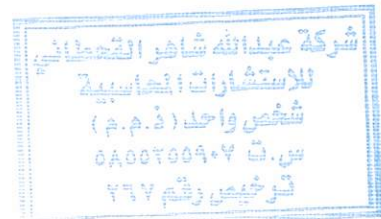 شركة عبدالله شاهر القحطاني
للاستشارات المحاسبية
شخص واحد (ذ.م.م)
س.ت ٥٨٥٥٣٥٥٩٠٧
ترخيص رقم ٧٦٧